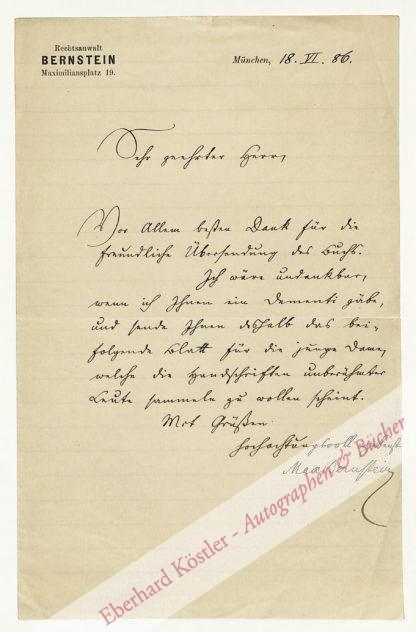 Rechtsanwalt
BERNSTEIN
Maximiliansplatz 19.
München, 18. VI. 86.
Sehr geehrter Herr,
Vor Allem besten Dank für die
freundliche Übersendung des Buchs.
Ich wäre undankbar,
wenn ich Ihnen ein Dementi gäbe,
und sende Ihnen deshalb das bei-
folgende Blatt für die junge Dame,
welche die Handschriften unberühmter
Leute sammeln zu wollen scheint.
Mit Grüßen
hochachtungsvoll
Max Bernstein
Eberhard Köstler - Autographen & Bücher